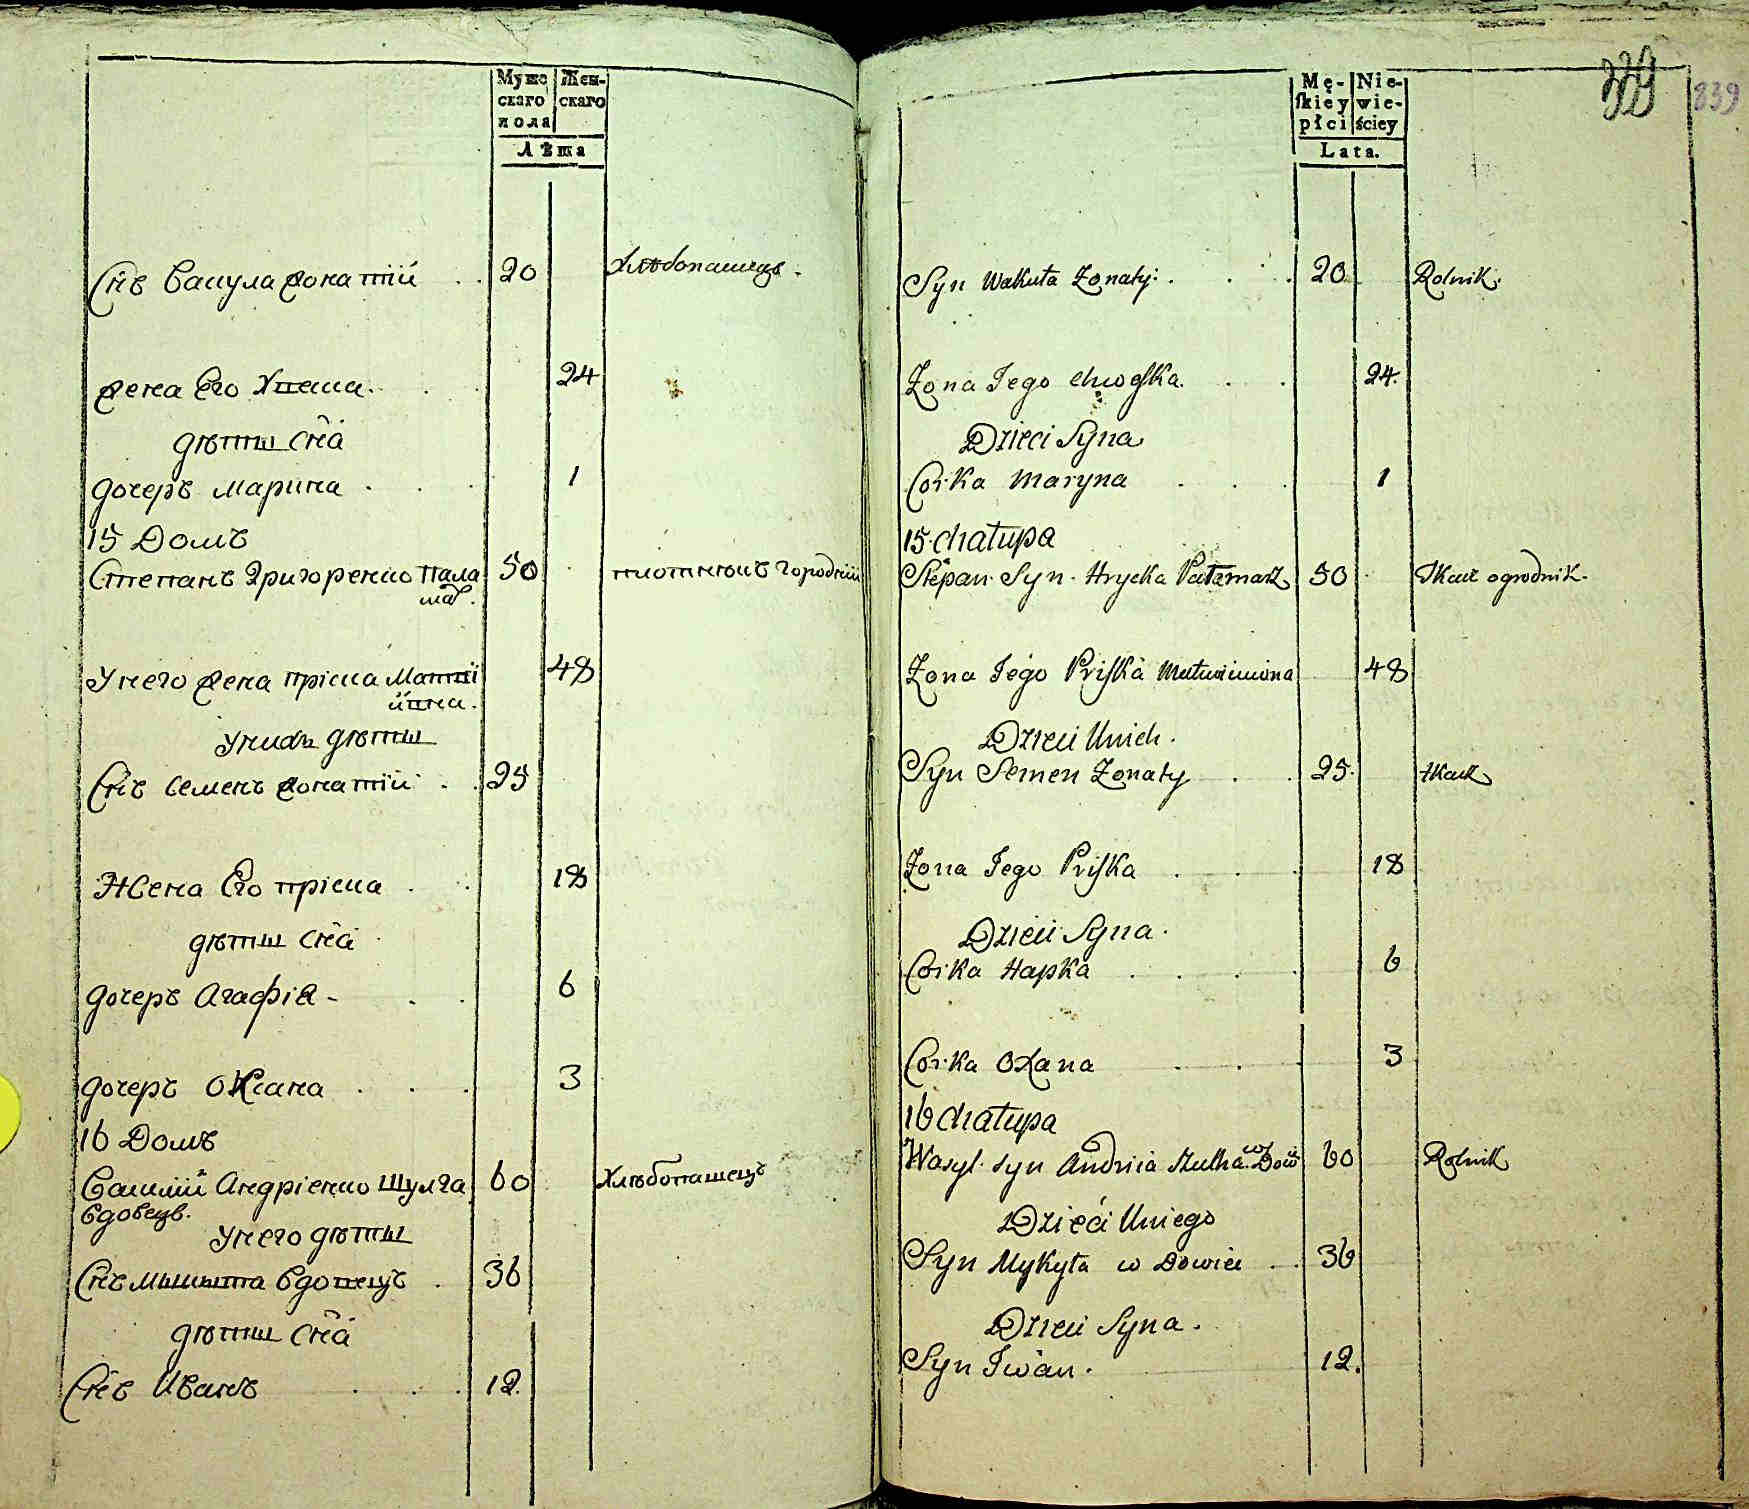 Мужескаго пола
Женскаго
Лѣта
Снъ Вакула Жонатій 20 Хлѣбопашецъ.
Жена Его Хвеска. 24
дѣти Сна
дочеръ Марина 1
15 Домъ
Степанъ Григоренко Пала
мар. 50 ткачь городній
У него Жена Пріска Матві
йвна. 48
У нихъ дѣти
Снъ Семенъ Жонатій 25
Жена Его Пріска 18
дѣти Сна
дочеръ Агафія 6
дочеръ Оксана 3
16 Домъ
Василій Андріенко Шулга 60 Хлѣбопашецъ
вдовецъ.
У него дѣти
Снъ Микита вдовецъ 36
дѣти Сна
Снъ Иванъ 12.
339
839
Męskiey płci
Niewieściey
Lata.
Syn Wakuła Żonaty. 20 Rolnik.
Żona Jego Chweśka. 24.
Dzieci Syna
Corka Maryna 1
15. Chałupa
Stepan Syn Hrycka Pałamarz 50 Tkacz ogrodnik.
Żona Jego Priska Matwiiwna 48
Dzieci Unich.
Syn Semen Żonaty 25. tkacz
Żona Jego Priska 18
Dzieci Syna.
Corka Hapka 6
Corka Oxana 3
16 Chałupa
Wasyl syn Andriia Szulha wdow 60 Rolnik
Dzieci Uniego
Syn Mykyta wdowiec 36
Dzieci Syna.
Syn Iwan. 12.